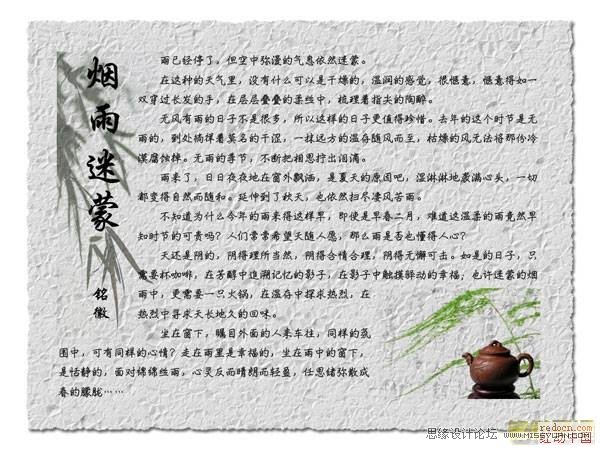 烟雨迷蒙
铭徽
雨已轻停了，但空中弥漫的气息依然迷蒙。
在这种的天气里，没有什么可以是干燥的，温润的感觉，很惬意，惬意得如一
双穿过长发的手，在层层叠叠的柔丝中，梳理着指尖的陶醉。
无风有雨的日子不是很多，所以这样的日子更值得珍惜。去年的这个时节是无
雨的，到处揣伴着莫名的干涩，一抹远方的温存随风而至，枯燥的风无法将那份冷
漠腐蚀掉。无雨的季节，不断把相思拧出泪滴。
雨来了，日日夜夜地在窗外飘洒，是夏天的原因吧，湿淋淋地蒙满心头，一切
都变得自然而随和。延伸到了秋天，也依然扫尽凄风苦雨。
不知道为什么今年的雨来得这样早，即使是早春二月，难道这温柔的雨竟然早
知时节的可贵吗？人们常常希望天随人愿，那么雨是否也懂得人心？
天还是阴的，阴得理所当然，阴得合情合理，阴得无懈可击。如是的日子，只
需要杯咖啡，在芳醇中追溯记忆的影子，在影子中触摸驿动的幸福，也许迷蒙的烟
雨中，更需要一只火锅，在温存中探求热烈，在
热烈中寻求天长地久的回味。
坐在窗下，瞩目外面的人来车往，同样的氛
围中，可有同样的心情？走在雨里是幸福的，坐在雨中的窗下，
是恬静的，面对绵绵丝雨，心灵反而晴朗而轻盈，任思绪弥散成
春的朦胧……
思缘设计论坛 WWW.MISSYUAN.COM
redocn.com
红动中国